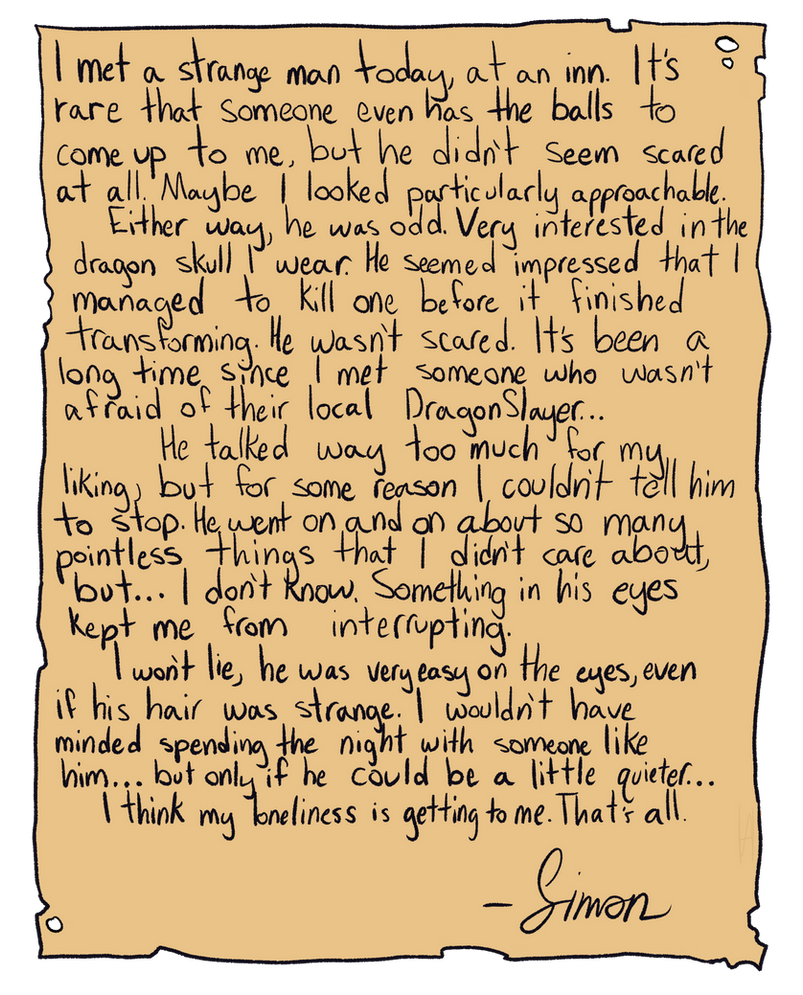 I met a strange man today, at an inn. It's
rare that someone even has the balls to
come up to me, but he didn't seem scared
at all. Maybe I looked particularly approachable.
Either way, he was odd. Very interested in the
dragon skull I wear. He seemed impressed that I
managed to kill one before it finished
transforming. He wasn't scared. It's been a
long time since I met someone who wasn't
afraid of their local DragonSlayer...
He talked way too much for my
liking, but for some reason I couldn't tell him
to stop. He went on and on about so many
pointless things that I didn't care about,
but... I don't know. Something in his eyes
kept me from interrupting.
I won't lie, he was very easy on the eyes, even
if his hair was strange. I wouldn't have
minded spending the night with someone like
him... but only if he could be a little quieter...
I think my loneliness is getting to me. That's all.
- Simon